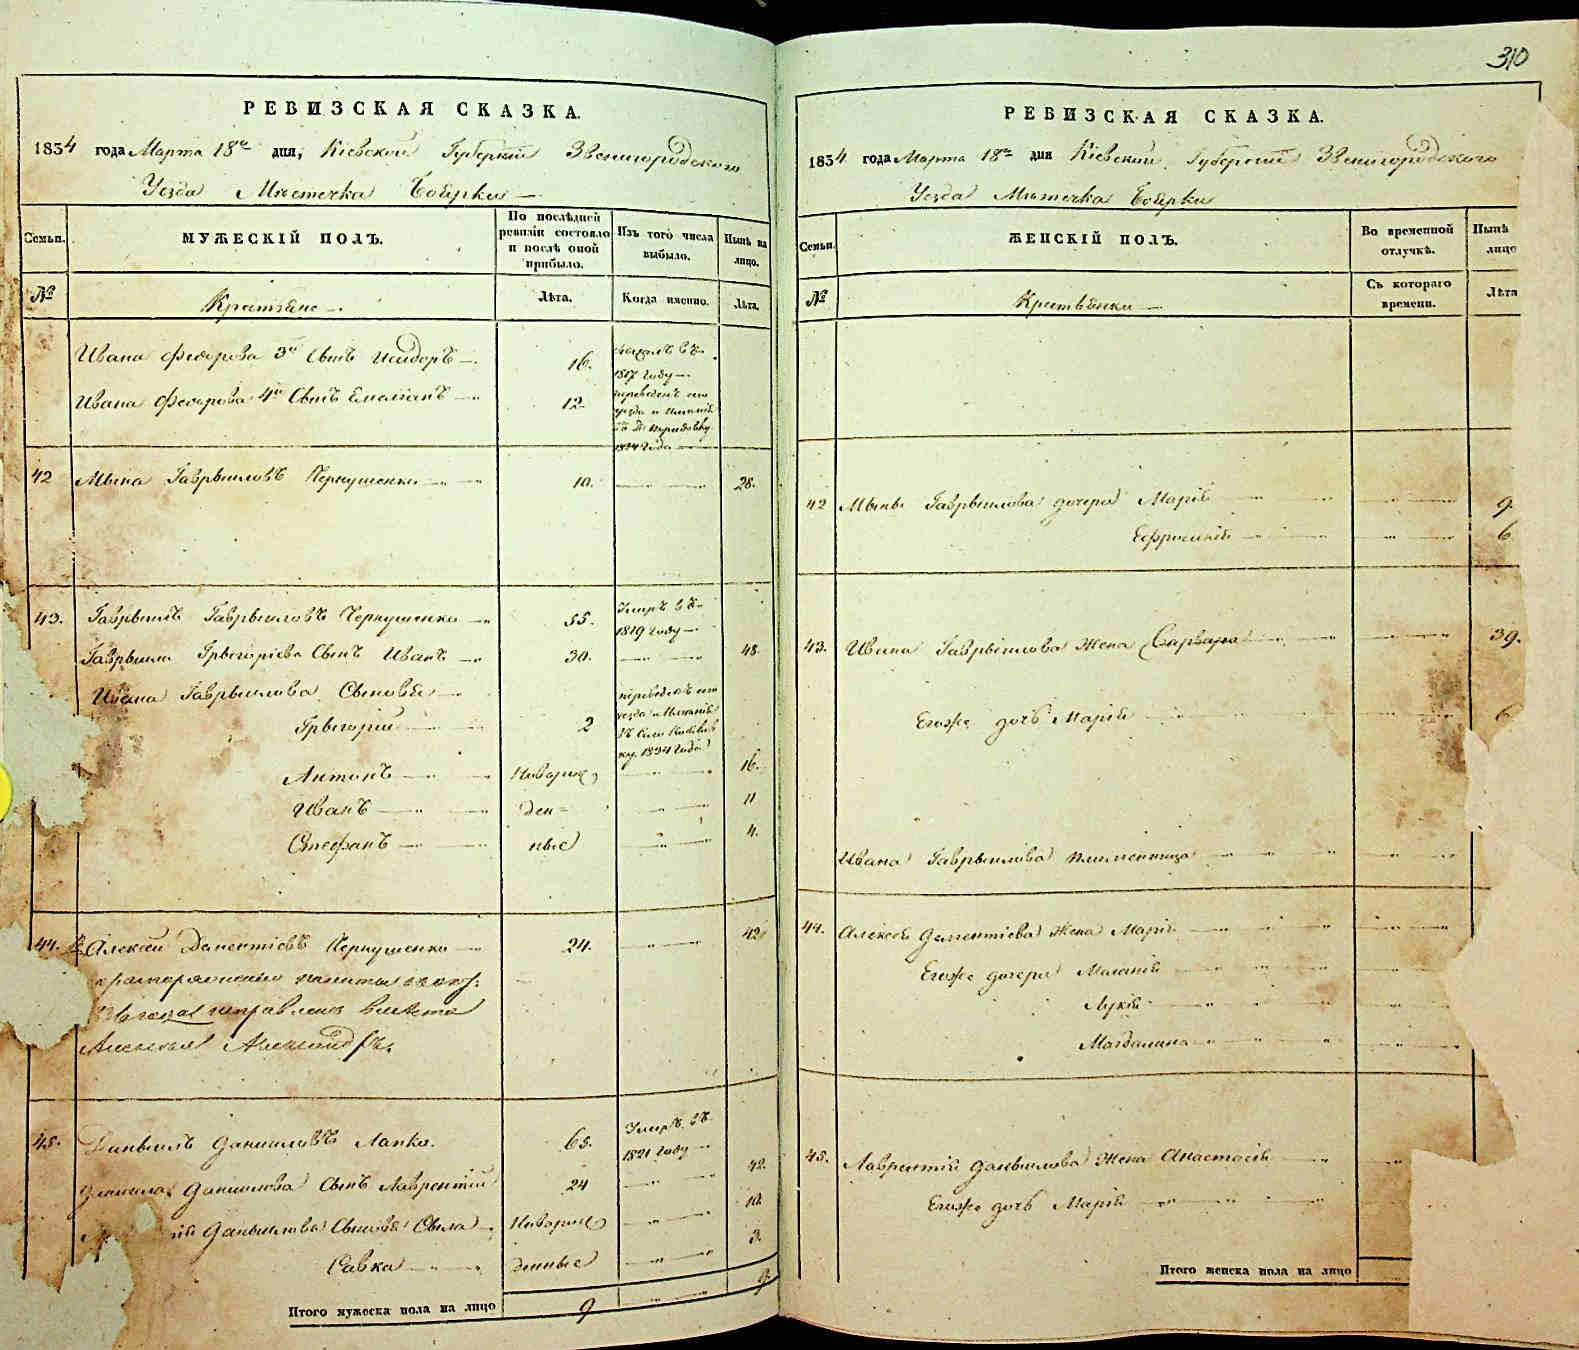 РЕВИЗСКАЯ СКАЗКА.
1834 года Марта 18го дня, Кіевской Губерніи Звенигородского
Уезда Мѣстечка Боберки
Семьи.
МУЖЕСКІЙ ПОЛЪ.
По послѣдней ревизіи состояло и послѣ оной прибыло.
Изъ того числа выбыло.
Нынѣ на лицо.
№
Крестьяне
Лѣта.
Когда именно.
Лѣта.
Ивана Федорова 3й Сынъ Исидоръ 16.
1817 году
Ивана Федорова 4й Сынъ Емелианъ 12
1834 года
42 Гаврыиловъ Чернушенко 10. 28.
43. Гаврыилъ Гаврыиловъ Чернушенко 55. Умеръ въ 1819 году
Гаврыила Грыгоріева Сынъ Иванъ 30. 48.
Ивана Гаврыилова Сыновья
Грыгорій 2
переведенъ
1834 года
Антонъ Новорож 16.
Иванъ ден= 11
Стефанъ ные 4.
44. Алексей Дементіевъ Чернушенко 24. 42
вместо
45. Данылъ Даниловъ Лапко. 65. Умеръ въ 1821 году
Данилова Сынъ Лаврентій 24 42.
Данылова Сыновья Новорож 10.
Савка денные 3.
Итого мужеска пола на лицо 9 9.
310
РЕВИЗСКАЯ СКАЗКА.
1834 года Марта 18го дня Кіевской Губерніи Звенигородского
Уезда Мѣстечка Боберки
Семьи.
ЖЕНСКІЙ ПОЛЪ.
Во временной отлучкѣ.
Нынѣ лицо
№
Крестьянки
Съ котораго времени.
Лѣта
42 Гаврыилова дочери Марія 9.
Ефросинія 6
43. Ивана Гаврыилова Жена Варвара 39.
Егоже дочь Марія 6
Ивана Гаврыилова племенница
44. Алексея Дементіева Жена Марія
Егоже дочери Маланія
Лукія
Магдалина
45. Лаврентія Данылова Жена Анастасія
Егоже дочь Марія
Итого женска пола на лицо